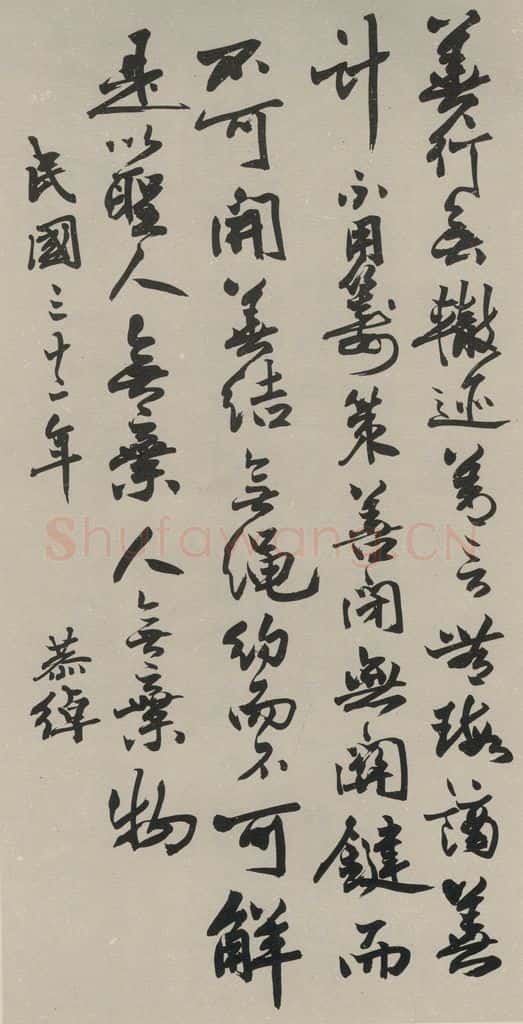 善行無轍迹善言無瑕謫善
計不用籌策善閉無關鍵而
不可開善結無繩約而不可解
是以聖人無棄人無棄物
民國三十二年 恭綽
Shufawang.CN